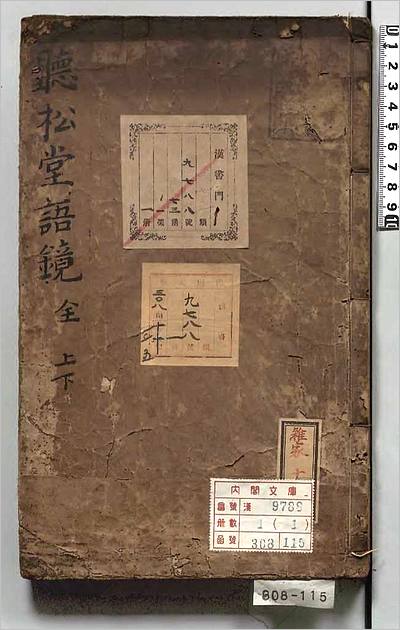 聽松堂語鏡 全 上下
漢書門
九七八八
類 號 函 架 冊
九七八八
三〇八
雜家
内閣文庫
番號 漢 9788
冊數 1(1)
函號 308 115
308-115
0 1 2 3 4 5 6 7 8 9 10